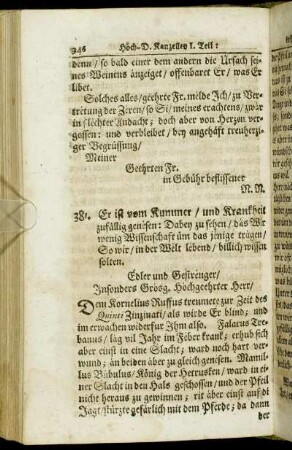 346 Höch-D. Kanzelley I. Teil:
denn/ so bald einer dem andern die Ursach sei-
nes Weinins änzeiget/ offenbaret Er/ was Er
libet.
Solches alles/ geehrte Fr. milde Ich/ zu Ver-
trétung der Zéren/ so Si/ meines erachtens/ zwar
in slöchter Andacht; doch aber von Herzen ver-
gossen: und verbleibet/ bey angehäft treuherzi-
ger Begrüssung/
Meiner
Geehrten Fr.
in Gebühr beflissener
N. N.
38. Er ist vom Kummer/ und Krankheit
zufällig genésen: Dabey zu sehen/ das Wir
wenig Wissenschaft üm das jenige trägen/
So wir/ in der Wélt lebend/ billich wissen
solten.
Edler und Gestrenger/
Insonders Grösg. Höchgeehrter Herr/
Dem Kornelius Ruffus treumete zur Zeit des
Quinti Zinzinati/ als wirde Er blind; und
im erwachen widerfur Ihm also. Falarus Tre-
banus/ läg vil Jahr im Féber krank; erhub sich
aber einst in eine Slacht/ ward noch hart ver-
wund; än beiden aber zu gleich genésen. Mamil-
lus Bübulus/ König der Hetrusken/ ward in ei-
ner Slacht in den Hals geschossen/ und der Pfeil
nicht heraus zu gewinnen; rit äber einst auf di
Jagt/ stürzte gefürlich mit dem Pferde; da dann
der